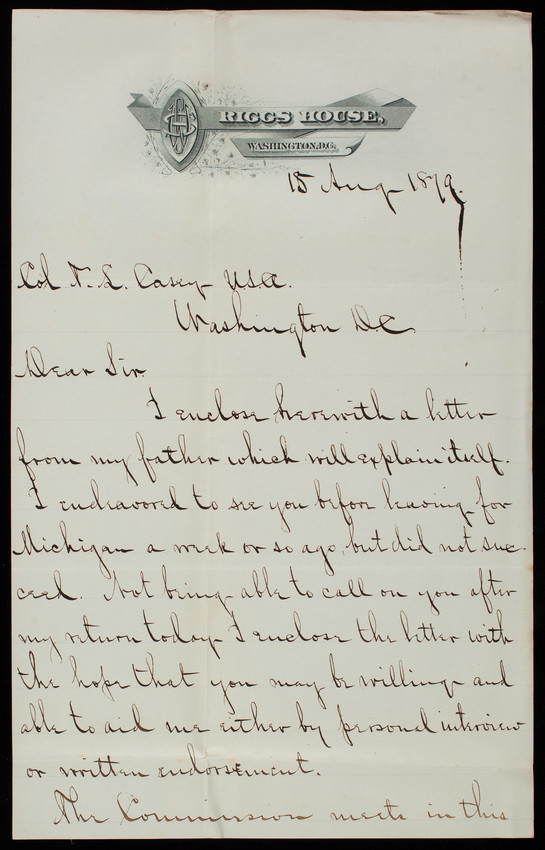 RIGGS HOUSE,
WASHINGTON, D.C.
15 Aug 1879.
Col T. L. Casey USA.
Washington D.C.
Dear Sir.
I enclose herewith a letter
from my father which will explain itself.
I endeavored to see you before leaving for
Michigan a week or so ago, but did not suc
ceed. Not being able to call on you after
my return today I enclose the letter with
the hope that you may be willing and
able to aid me either by personal interview
or written endorsement.
The Commission meets in this